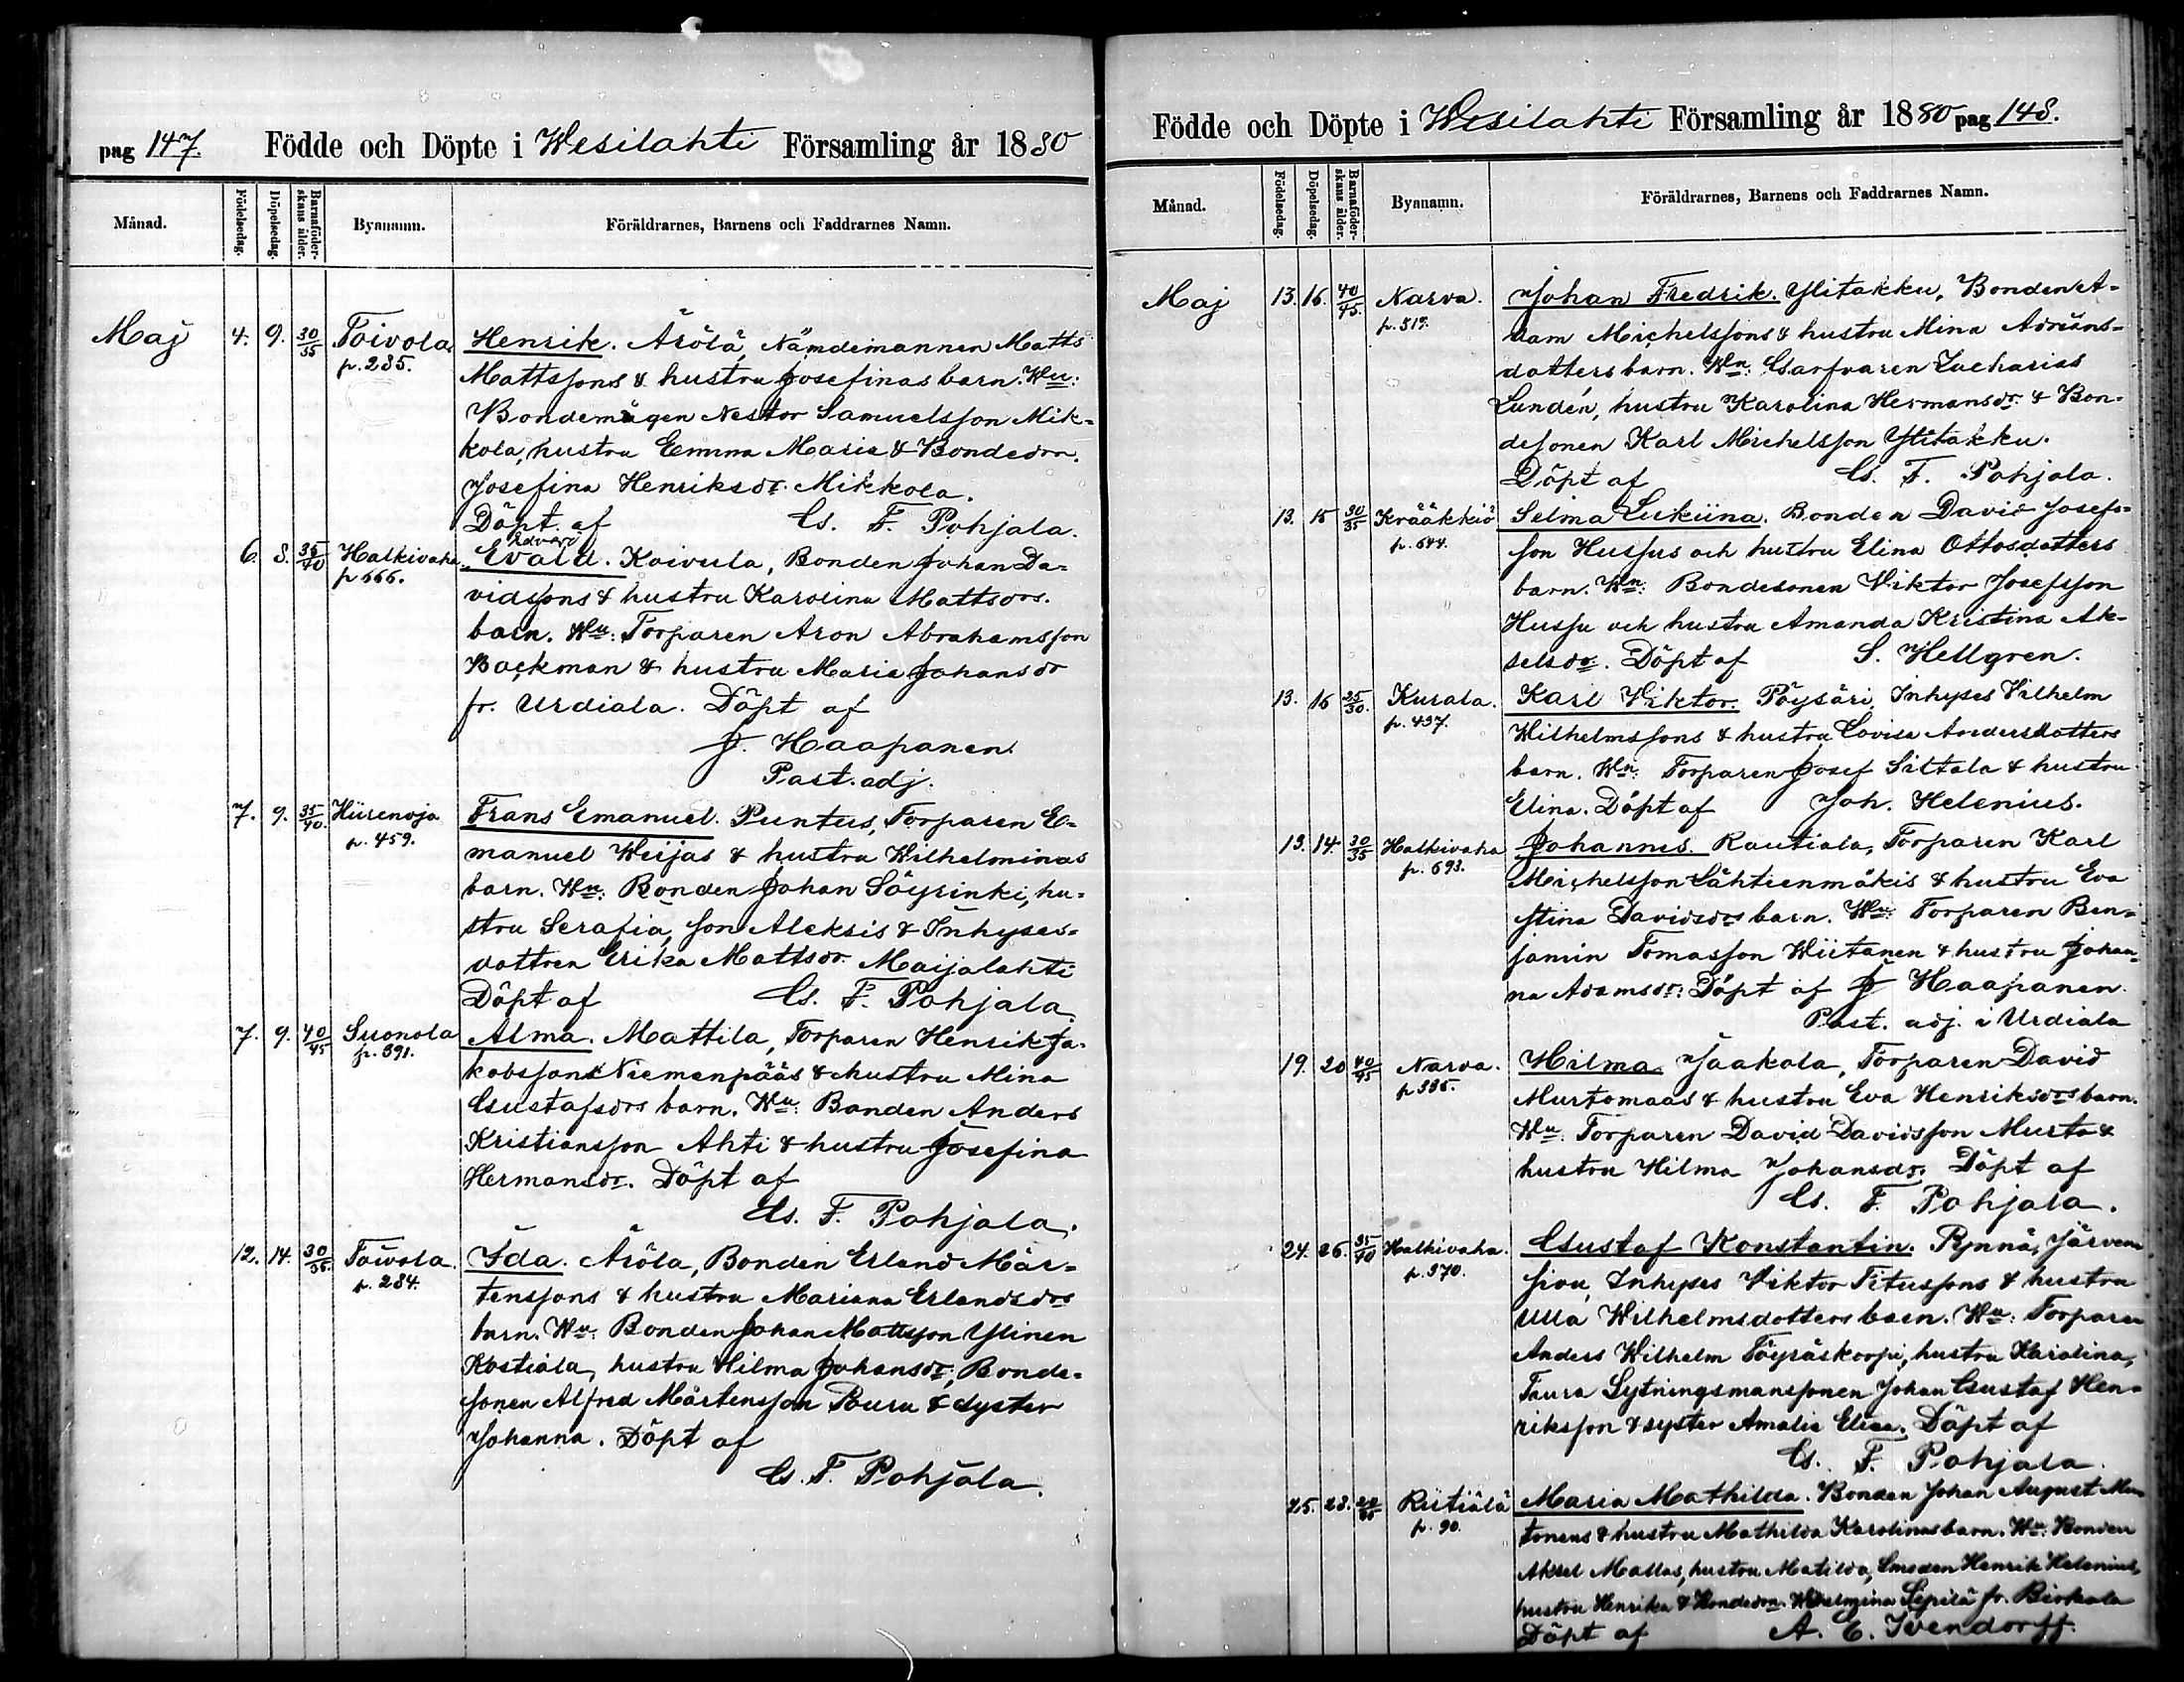 pag 147. Födde och Döpte i Wesilahti Församling år 1880
Månad. Födelsedag. Döpelsedag. Barnaföderskans ålder. Bynamn. Föräldrarnes, Barnens och Faddrarnes Namn.
Maj 4. 9. 30/35 Toivola Henrik. Arölä, Nämdemannen Matts
p. 285. Mattssons & hustru Josefinas barn. Wn:
Bondemågen Nestor Samuelsson Mik-
kola, hustru Emma Maria & Bondedrn.
Josefina Henriksdr. Mikkola.
Döpt af Gs. F. Pohjala.
Edvard
6. 8. 35/40 Halkivaha Evald. Koivula, Bonden Johan Da-
p 666. vidssons & hustru Karolina Mattsdrs.
barn. Wn: Torparen Aron Abrahamsson
Backman & hustru Maria Johansdr
fr. Urdiala. Döpt af
J. Haapanen
Past. adj.
7. 9. 35/40. Hiirenoja Frans Emanuel. Puntus, Torparen E-
p. 459. manuel Weijas & hustru Wilhelminas
barn. Wn: Bonden Johan Söyrinki, hu-
stru Serafia, son Aleksis & Inhyses-
dottren Erika Mattsdr. Maijalahti
Döpt af Gs. F. Pohjala.
7. 9. 40/45 Suonola Alma. Mattila, Torparen Henrik Ja-
p. 391. kobssons Niemenpääs & hustru Mina
Gustafsdrs barn. Wn: Bonden Anders
Kristiansson Ahti & hustru Josefina
Hermansdr. Döpt af
Gs. F. Pohjala.
12. 14. 30/35. Toivola. Ida. Aröla, Bonden Erland Mår-
p. 284. tenssons & hustru Mariana Erlandsdrs
barn. Wn: Bonden Johan Mattsson Ylinen
Kostiala, hustru Hilma Johansdr, Bonde-
sonen Alfred Mårtensson Buru & syster
Johanna. Döpt af
Gs. F. Pohjala.
Födde och Döpte i Wesilahti Församling år 1880 pag 148.
Månad. Födelsedag. Döpelsedag. Barnaföderskans ålder. Bynamn. Föräldrarnes, Barnens och Faddrarnes Namn.
Maj 13. 16. 40/45. Narva. Johan Fredrik. Ylitakku, Bonden A-
p. 519. dam Michelssons & hustru Mina Adrians-
dotters barn. Wn: Garfvaren Zacharias
Lundén, hustru Karolina Hermansdr. & Bon-
desonen Karl Michelsson Ylitakku.
Döpt af Gs. F. Pohjala.
13. 15 30/35 Krääkkiö Selma Lukiina. Bonden David Josefs-
p. 644. son Hussus och hustru Elina Ottosdotters
barn. Wn: Bondesonen Viktor Josefsson
Hussu och hustru Amanda Kristina Ak-
selsdr. Döpt af S. Hellgren.
13. 16 25/30. Kurala. Karl Viktor. Pöysäri, Inhyses Vilhelm
p. 497. Wilhelmssons & hustru Lovisa Andersdotters
barn. Wn: Torparen Josef Siltala & hustru
Elina. Döpt af Joh. Helenius.
13. 14. 30/35 Halkivaha Johannes. Rautiala, Torparen Karl
p. 693. Michelsson Lähteenmäkis & hustru Eva
Stina Davidsdrs barn. Wn: Torparen Ben-
jamin Tomasson Wiitanen & hustru Johan-
na Adamsdr: Döpt af J Haapanen.
Past. adj. i Urdiala
19. 20 40/45 Narva. Hilma. Jaakala, Torparen David
p 335. Murtomaas & hustru Eva Henriksdrs barn.
Wn: Torparen David Davidsson Murto &
hustru Hilma Johansdr. Döpt af
Gs. F. Pohjala.
24. 26. 35/40 Halkivaha. Gustaf Konstantin. Rynnä, Järven-
p. 370. sivu, Inhyses Viktor Titussons & hustru
Ulla Wilhelmsdotters barn. Wn: Torparen
Anders Wilhelm Töyräskorpi, hustru Karolina,
Taura Lytningsmanssonen Johan Gustaf Hen-
riksson & syster Amalia Elisa. Döpt af
Gs. F. Pohjala.
25. 28. Riitiälä Maria Mathilda. Bonden Johan August
p. 90. tonens & hustru Mathilda Karolinas barn. Wn: Bonden
Aksel Mallas, hustru Matilda, Smeden Henrik Helenius,
hustru Henrika & Bondedrn. Wilhelmina Sipilä fr. Birkala
Döpt af A. E. Ivendorff.